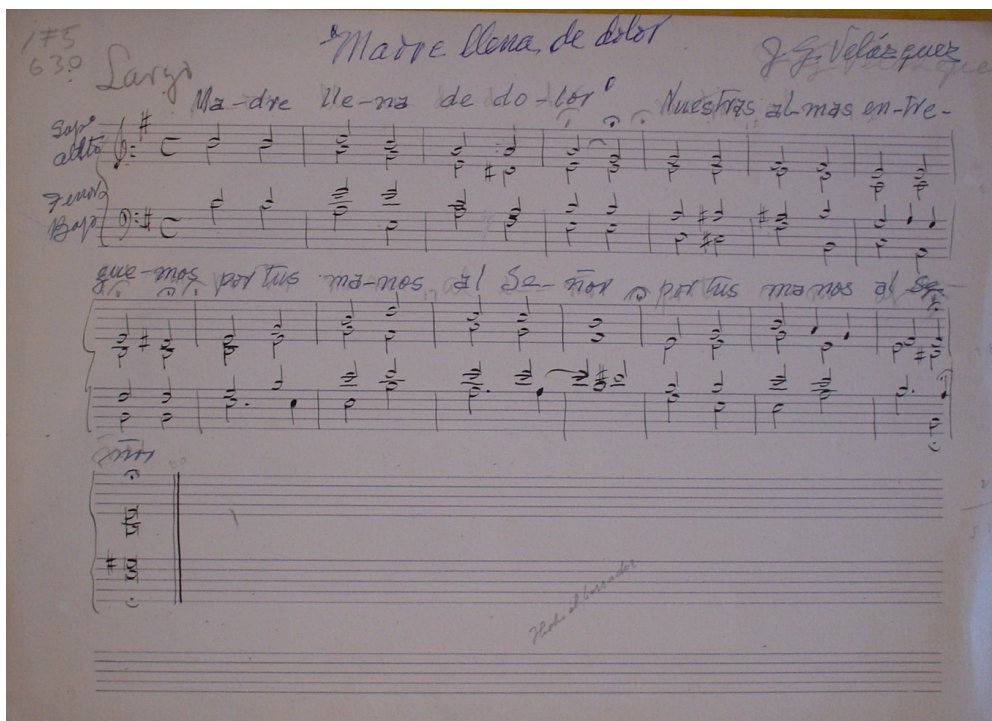 175
630
Madre llena de dolor
J. G. Velázquez
Largo
Ma-dre lle-na de do-lor Nuestras al-mas en-tre-
Sopº
alto
Tenor
Bajo
gue-mos por tus ma-nos al Se-ñor por tus manos al Se-
ñor